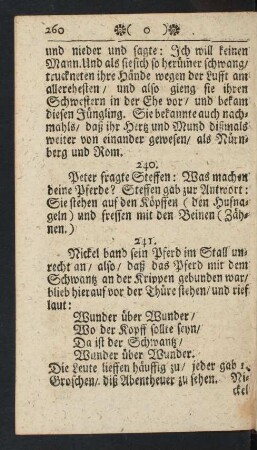 260 ❀ ( o ) ❀
und nieder und sagte: Ich will keinen
Mann. Und als sie sich so herüm̃er schwang/
truckneten ihre Hände wegen der Lufft am
allerehesten/ und also gieng sie ihren
Schwestern in der Ehe vor/ und bekam
diesen Jüngling. Sie bekante auch nach-
mahls/ daß ihr Hertz und Mund dißmals
weiter von einander gewesen/ als Nürn-
berg und Rom.
240.
Peter fragte Steffen: Was machen
deine Pferde? Steffen gab zur Antwort:
Sie stehen auf den Köpffen ( den Hufna-
geln ) und fressen mit den Beinen (Zäh-
nen.)
241.
Nickel band sein Pferd im Stall un-
recht an/ also/ daß das Pferd mit dem
Schwantz an der Krippen gebunden war/
blieb hierauf vor der Thüre stehen/ und rief
laut:
Wunder über Wunder/
Wo der Kopff solte seyn/
Da ist der Schwantz/
Wunder über Wunder.
Die Leute lieffen häuffig zu/ jeder gab 1.
Groschen/ diß Abentheuer zu sehen. Ni-
ckel